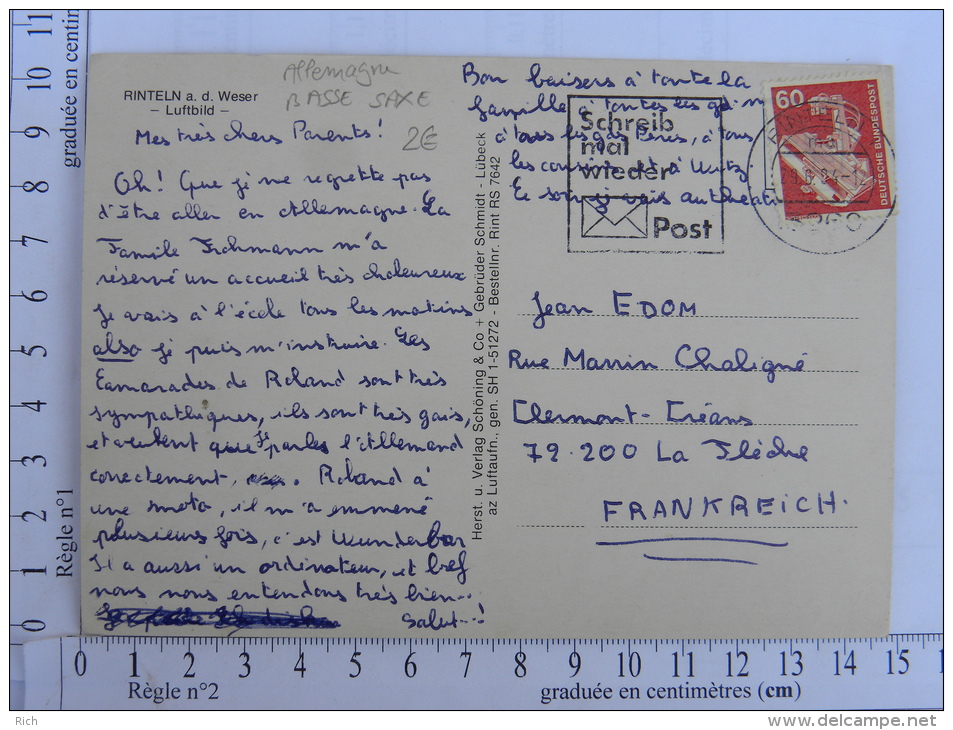 Allemagne
BASSE SAXE
2€
RINTELN a. d. Weser
– Luftbild –
Mes très chers Parents!
Oh! Que je ne regrette pas
d'être aller en Allemagne. La
Famille Frohmann m'a
réservé un accueil très chaleureux
Je vais à l'école tous les matins
also je puis m'instruire. Les
Camarades de Roland sont très
sympathiques, ils sont très gais,
et veulent que je parles l'Allemand
correctement, . Roland à
une moto, il m'a emmené
plusieurs fois, c'est Wunderbar
Il a aussi un ordinateur, et bref
nous nous entendons très bien...
Salut...!
Bon baisers à toute la
famille à toutes les
à tous les Pères, à tous
les cousins et à
Ce soir je vais
Herst. u. Verlag Schöning & Co + Gebrüder Schmidt - Lübeck
az Luftaufn., gen. SH 1-51272 - Bestellnr. Rint RS 7642
Schreib
mal
wieder
Post
60
DEUTSCHE BUNDESPOST
Jean EDOM
Rue Marrin Chaligné
Clermont-Créans
72.200 La Flèche
FRANKREICH.
0 1 2 3 4 5 6 7 8 9 10 11
Règle n°1
graduée en centim
0 1 2 3 4 5 6 7 8 9 10 11 12 13 14 15 1
Règle n°2
graduée en centimètres (cm)
Rich
www.delcampe.net